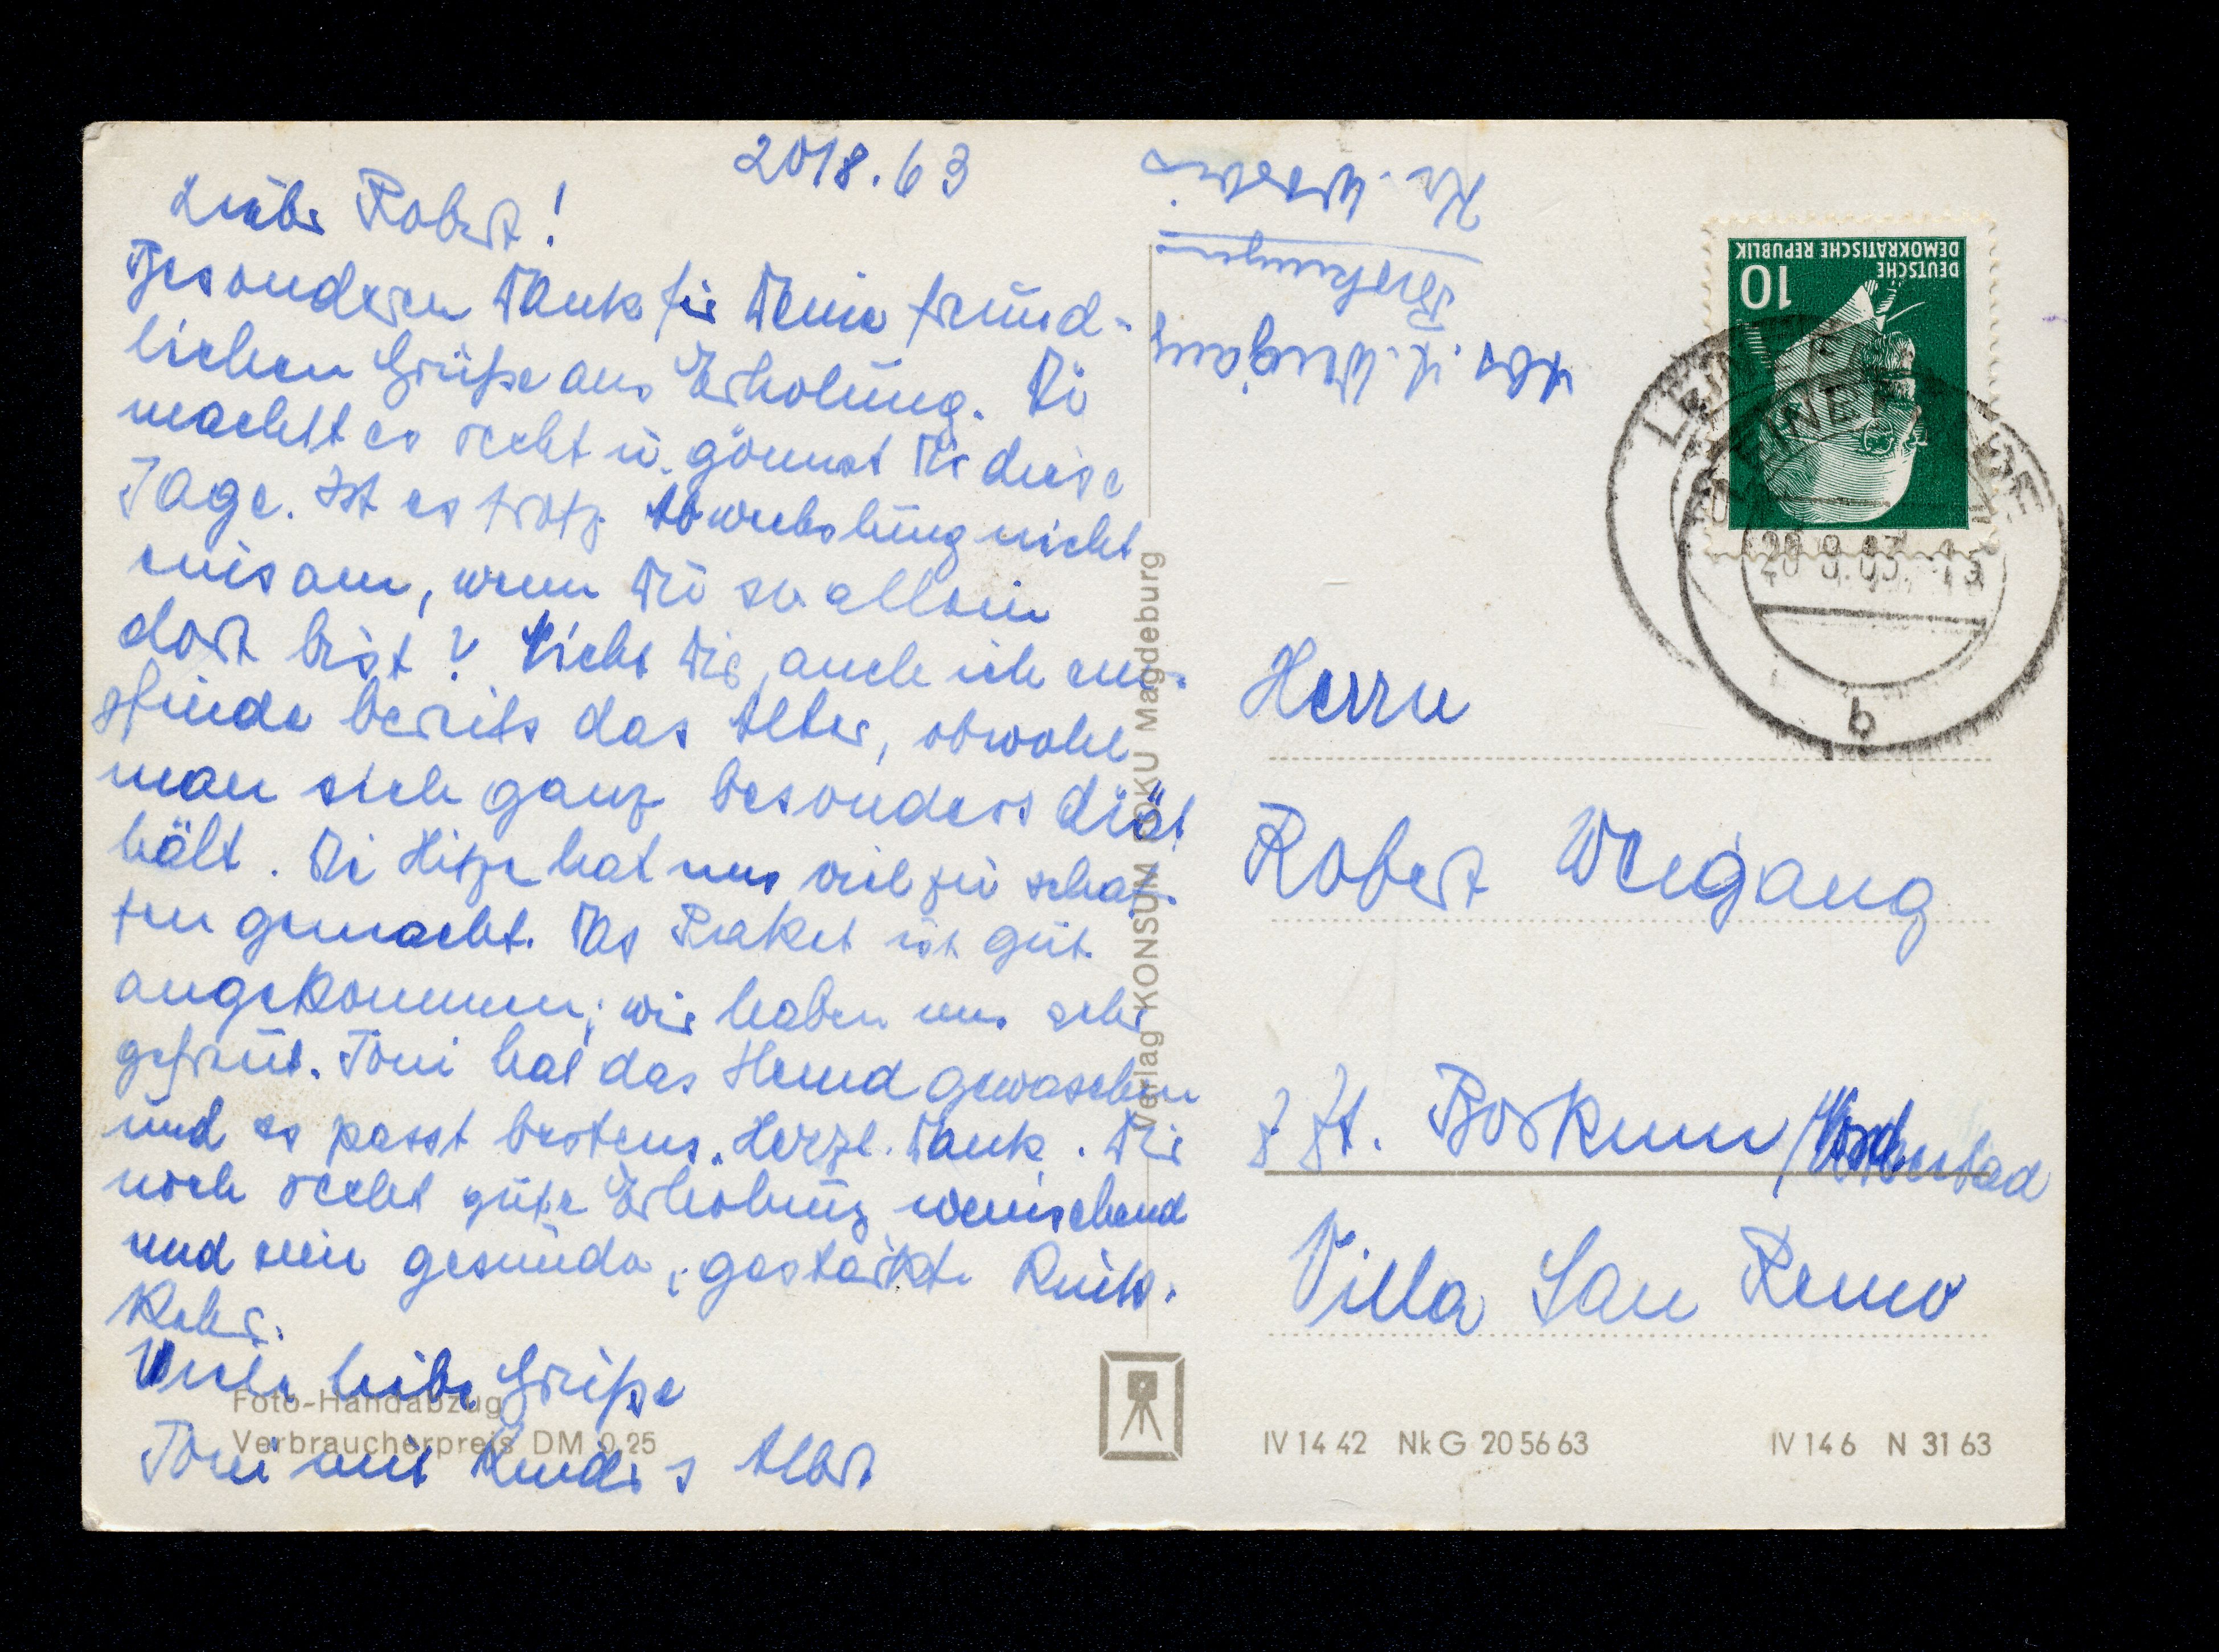 20/8.63
Lieber Robert!
Besonderen Dank für Deine freund-
lichen Grüße aus Erholung. Du
machst es recht u. gönnst Dir diese
Tage. Ist es trotz Abwechslung nicht
einsam, wenn Du so allein
dort bist? Siehst Du, auch ich em-
pfinde bereits das Alter, obwohl
man sich ganz besonders diät
hält. Die Hitze hat uns viel zu schaf-
fen gemacht. Das Paket ist gut
angekommen; wir haben uns sehr
gefreut. Toni hat das Hemd gewaschen
und es passt bestens. Herzl. Dank. Dir
noch recht gute Erholung wünschend
und eine gesunde, gestärkte Rück-
kehr.
Viele liebe Grüße
Toni und Kinder Albert
Foto-Handabzug
Verbraucherpreis DM 0,25
Verlag KONSUM DOKU Magdeburg
Abs. A. Weigang
Kr. Worbis
DEUTSCHE
DEMOKRATISCHE REPUBLIK
10
LEINEFELDE
b
Herrn
Robert Weigang
z Zt. Borkum/Nordseebad
Villa San Remo
IV 14 42 NkG 20 56 63
IV 14 6 N 31 63